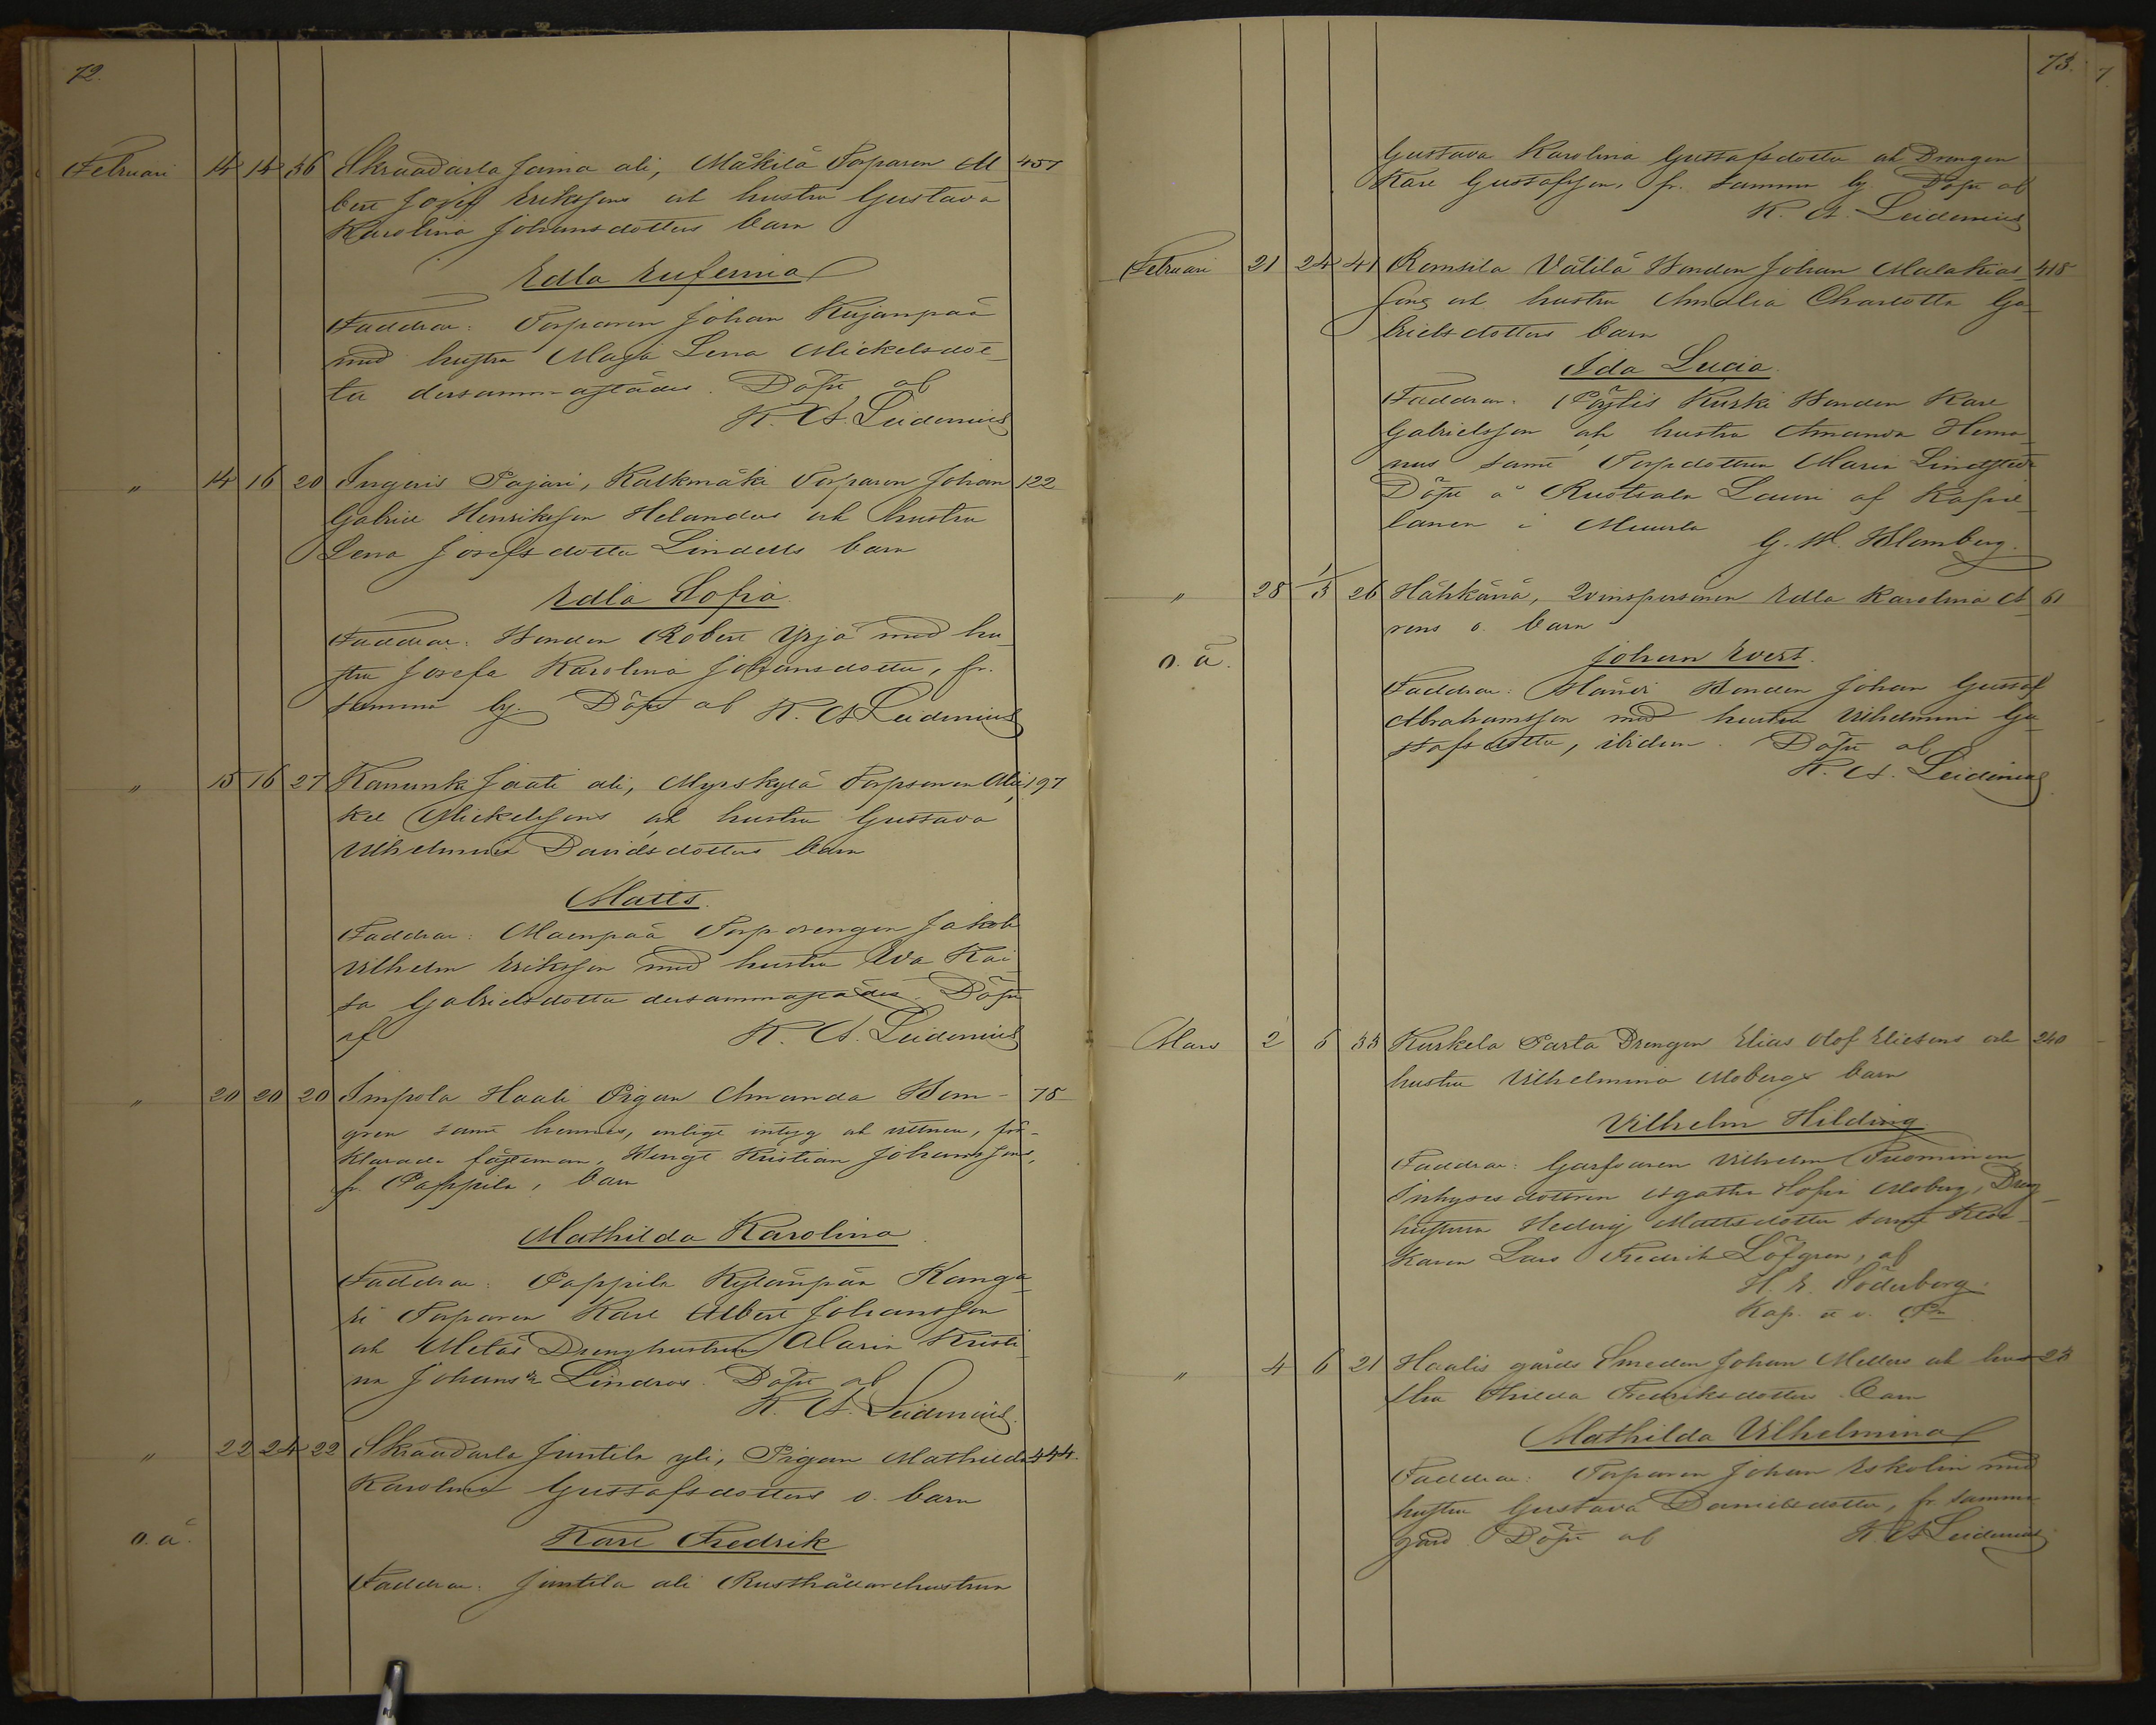 72.
Februari 14 14 36 Skraadarla Jaina ali, Mäkilä Torparen Al 457
bert Josef Erikssons och hustru Gustava
Karolina Johansdotters barn
Edla Eufemia
Faddrar: Torparen Johan Kujanpää
med hustru Maja Lena Mickelsdot-
ter dersammastädes. Döpt af
K. A. Leidenius
" 14 16 20 Ingeris Pajari, Kalkmäki Torparen Johan 122
Gabriel Henriksson Helanders och hustru
Lena Josefsdotter Lindells barn
Edla Sofia.
Faddrar: Bonden Robert Yrjä med hu-
stru Josefa Karolina Johansdotter, fr.
samma by. Döpt af K. A Leidenius
" 15 16 27 Kanunki Jaati ali, Myrskylä Torparen Mic 197
kel Mickelssons och hustru Gustava
Vilhelmina Davidsdotters barn
Matts.
Faddrar: Maenpää Torpdrengen Jakob
Vilhelm Eriksson med hustru Eva Kai
sa Gabrielsdotter dersammastädes. Döpt
af K. A. Leidenius
" 20 20 20 Impola Haali Pigan Amanda Bom- 78
gren samt hennes, enligt intyg och vittnen, för-
klarade fästeman, Bengt Kristian Johanssons,
fr. Pappila, barn
Mathilda Karolina.
Faddrar: Pappila Kylänpää Kanga
ri Torparen Karl Albert Johansson
och Drenghustrun Maria Kristi
na Johansdr Lindros. Döpt af
K. A. Leidenius.
" 22 24 22 Skraadarla Juntila yli, Pigan Mathilda 444.
Karolina Gustafsdotters o. barn
o. ä. Karl Fredrik
Faddrar: Juntila ali Rusthållarehustrun
73.
Gustava Karolina Gustafsdotter och Drengen
Karl Gustafsson, fr. samma by. Döpt af
K. A. Leidenius
Februari 21 24 41 Romsila Välilä Bonden Johan Malakias- 418
sons och hustru Amalia Charlotta Ga-
brielsdotters barn
Ida Lucia.
Faddrar: Pöytis Kurki Bonden Karl
Gabrielsson och hustru Amanda
samt Torpdottren Maria Lindstedt
Döpt å Ruotsala Lauri af Kapel-
lanen i Muurla G. W. Blomberg.
" 28 1/3 26 Hähkänä, Qvinspersonen Edla Karolina A 61
rens o. barn
o. ä. Johan Evert.
Faddrar: Bonden Johan Gustaf
Abrahamsson med hustru Vilhelmina Gu
stafsdotter, ibidem. Döpt af
K. A. Leidenius
Mars 2 6 33 Kurkela Parta Drengen Elias Olof Eliesons och 240
hustru Vilhelmina Mobergs barn
Vilhelm Hilding
Faddrar: Garfvaren Vilhelm Tuominen
Inhysesdottren Agatha Sofia Moberg, Dreng
hustrun Hedvig Mattsdotter samt Kloc
karen Lars Fredrik Löfgren, af
H. E. Söderborg.
Kap. a. o. Pn
" 4 6 21 Haalis gårds Smeden Johan Mellers och hu- 23
stru Thilda Fredriksdotters barn
Mathilda Vilhelmina
Faddrar: Torparen Johan Eskolin med
hustru Gustava Danielsdotter, fr. samma
gård. Döpt af K. A Leidenius